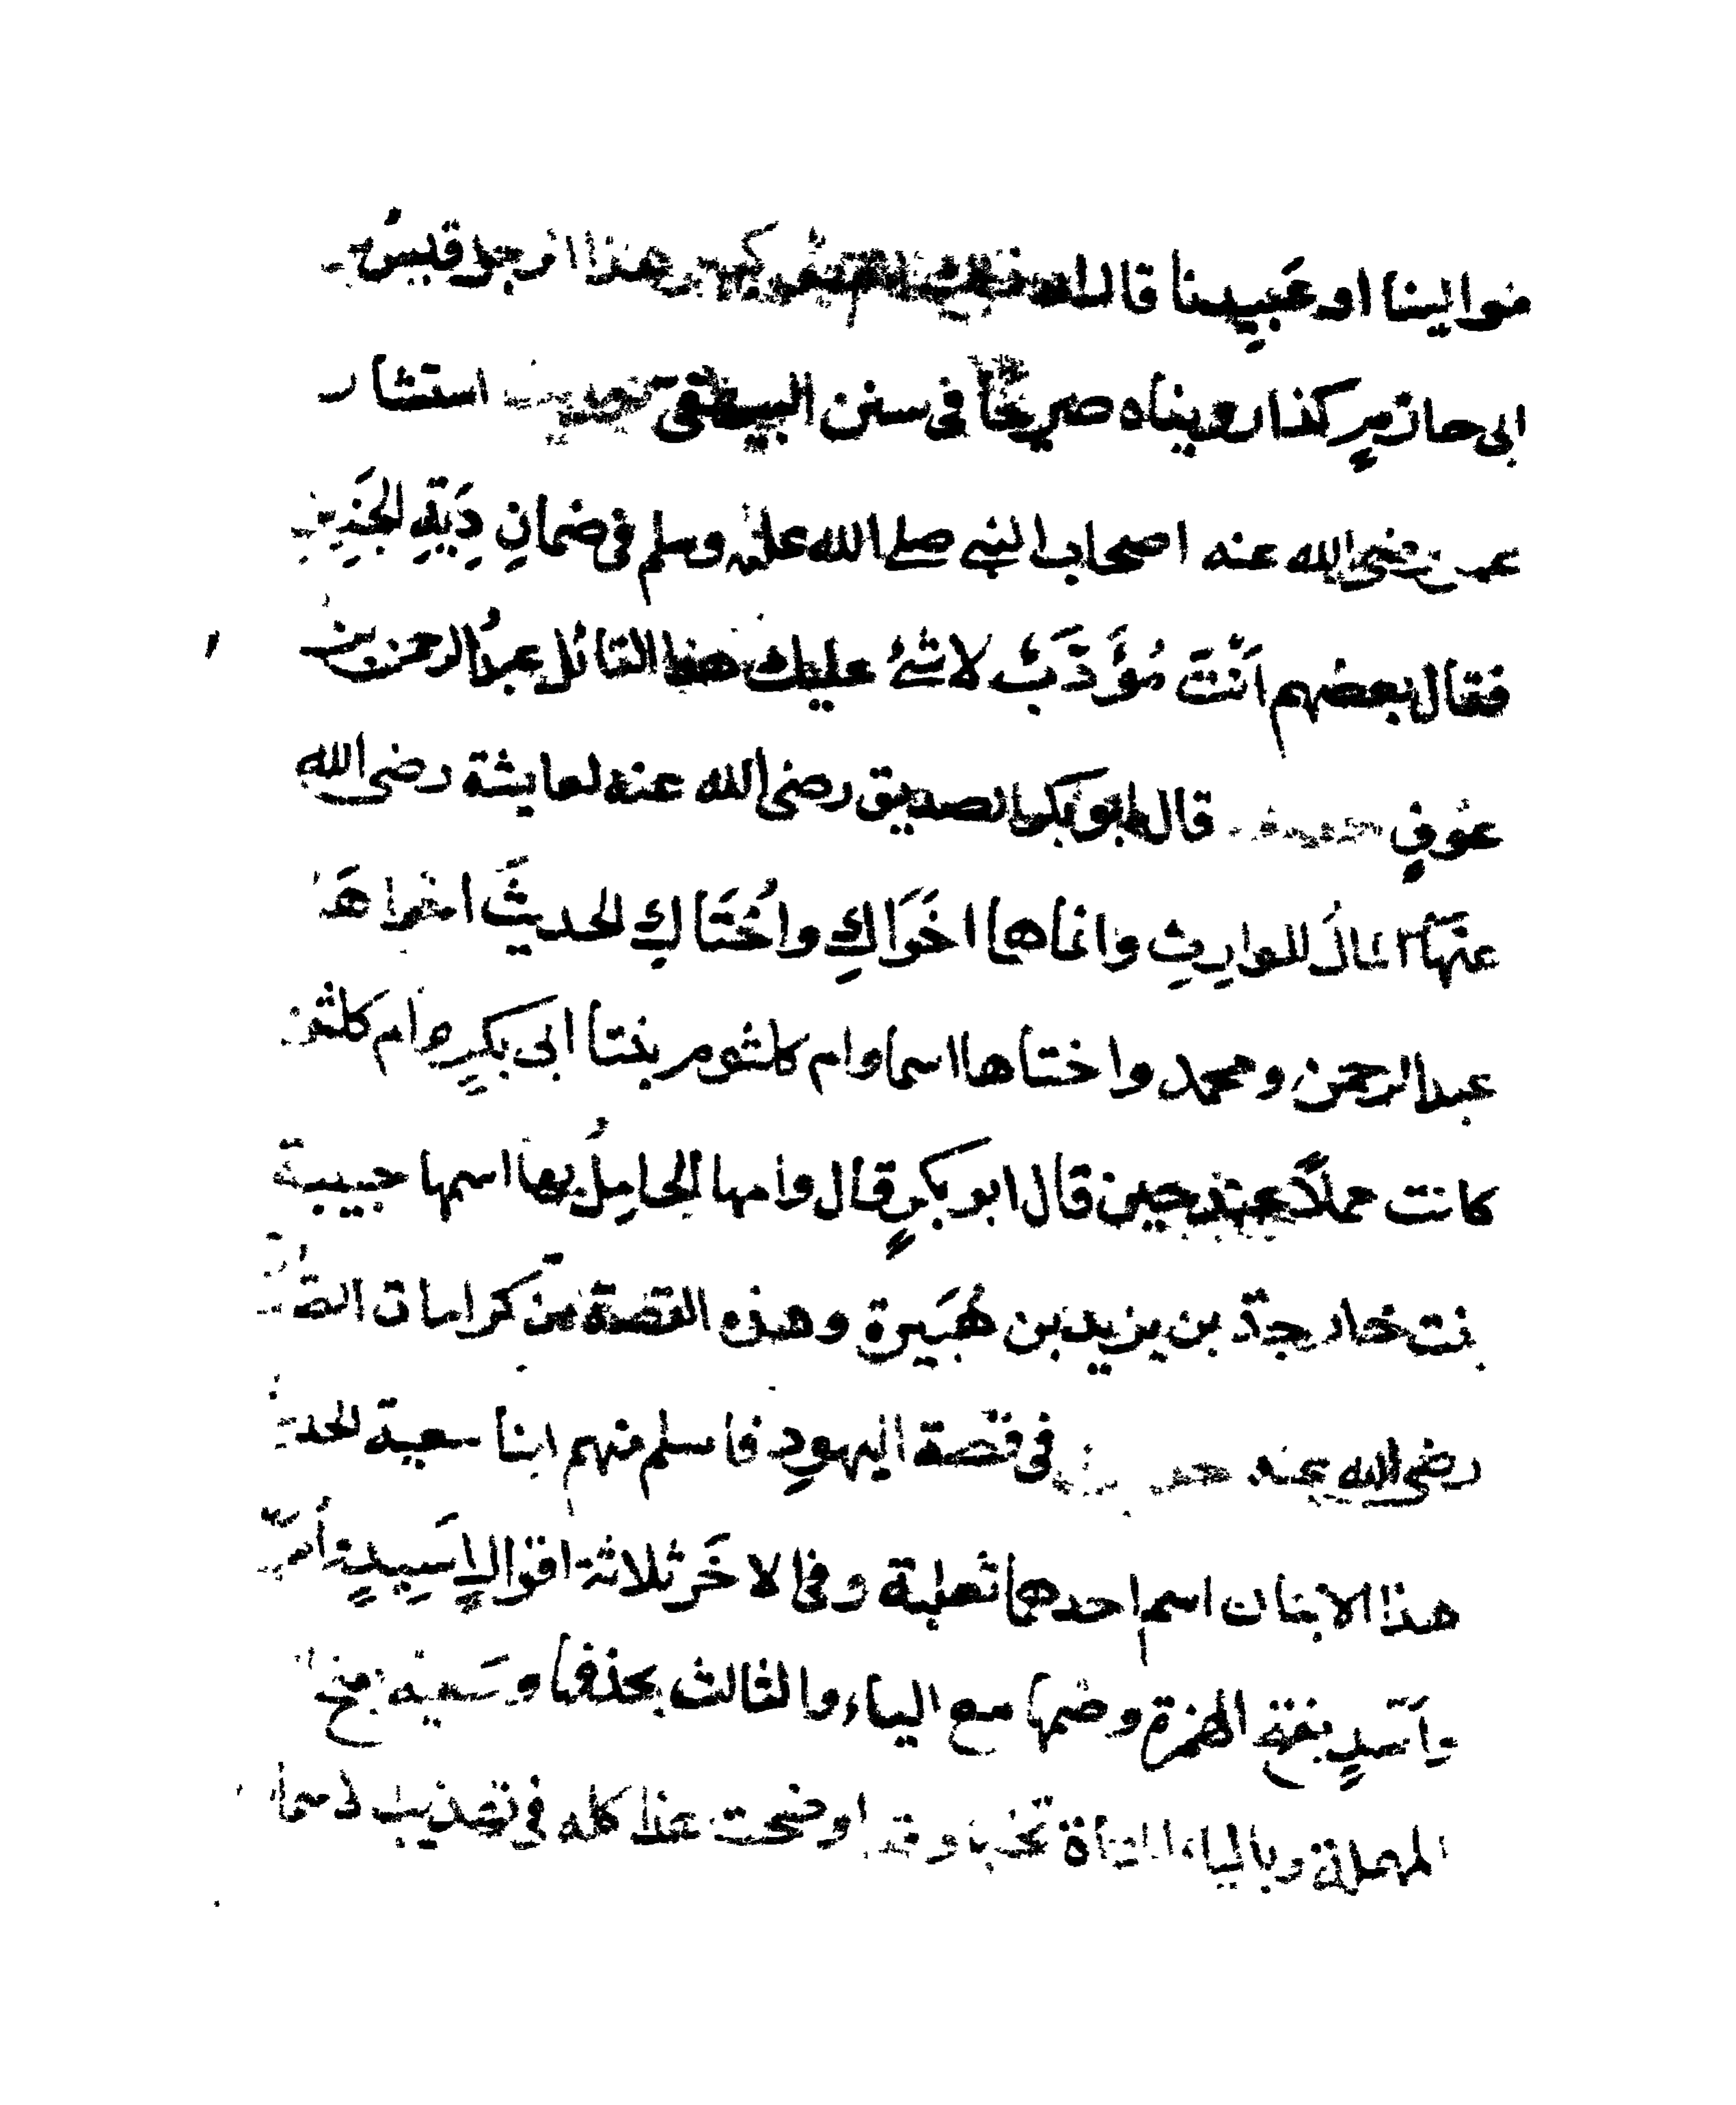 موالينا او عَبِيدنا قال ان ذلك لنقص كبير هذا الرجل قيس بن
ابى حازمٍ كذا رويناه صريحًا فى سنن البيهقى حديث استشار
عمر رضى الله عنه اصحاب النبى صلى الله عليه وسلم فى ضمانِ دِيَةِ الجَنِينِ
فقال بعضهم اَنْتَ مُؤَدّبٌ لا شئَ عليك هذا القائل عبدُ الرحمن بن
عوفٍ حديث قال ابو بكر الصديق رضى الله عنه لعايشة رضى الله
عنها المالَ للوارِثِ وانما هما اخَوَاكِ واُخْتَاكِ الحديثَ اخواهَا
عبد الرحمن ومحمد واختاها اسما وام كلثوم بنتا ابى بكرٍ وام كلثوم
كانت حملاً حين قال ابو بكرٍ قال وامها الحامِلُ بها اسمها حبيبة
بنت خارجة بن يزيد بن هُبَيرة وهذه القصة من كرامات الصديق
رضى الله عنه حديث فى قصة اليهودِ فاسلم منهم ابنا سعية الحديث
هذا الابنان اسم احدهما ثعلبة وفى الاخَر ثلاثة اقوالٍ اَسِيدٍ
واَسَدٍ بفتح الهمزة وضمها مع الياء والثالث بحذفها وسَعية بفتح
المهملة وبالياء المثناة تحت وقد اوضحت هذا كله فى تهذيب الاسما